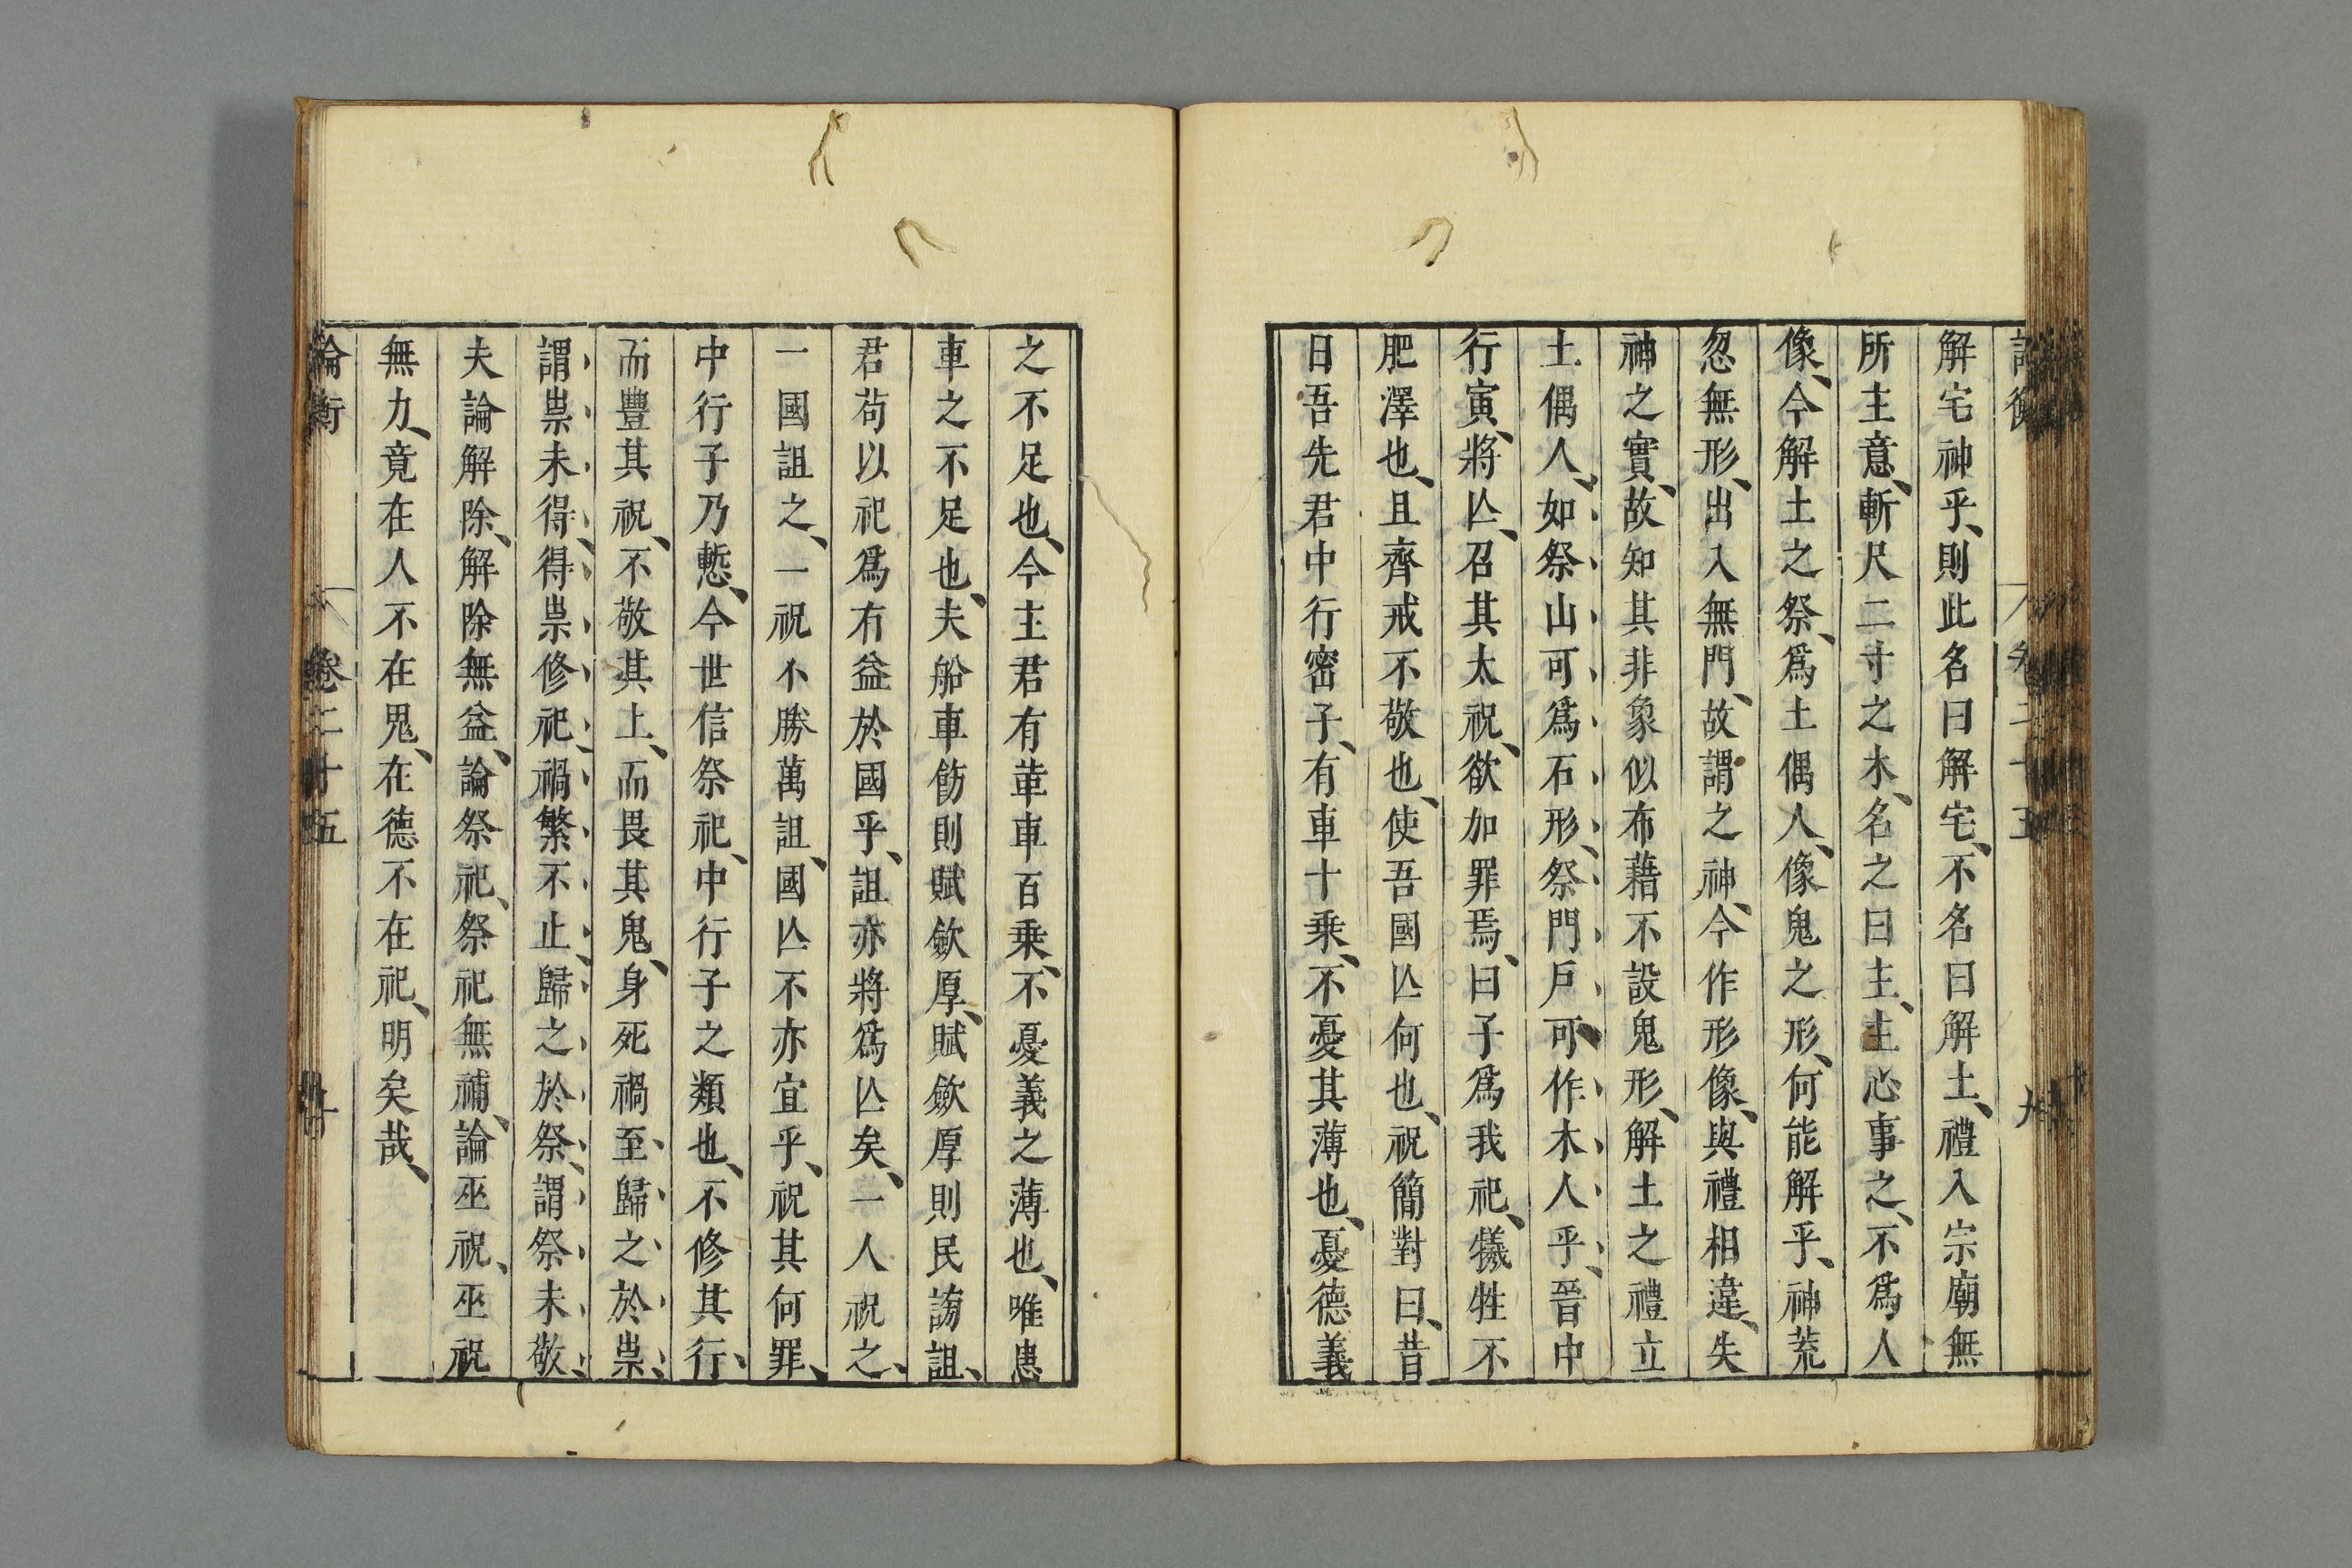 解宅神乎、則此名曰解宅、不名曰解土、禮入宗廟無
所主意、斬尺二寸之木、名之曰主、主心事之、不爲人
像、今解土之祭、爲土偶人、像鬼之形、何能解乎、神荒
忽無形、出入無門、故謂之神、今作形像、與禮相違、失
神之實、故知其非象似布藉不設鬼形、解土之禮立
土偶人、如祭山可爲石形、祭門戶可作木人乎、晉中
行寅將亾、召其太祝、欲加罪焉、曰子爲我祀、犧牲不
肥澤也、且齊戒不敬也、使吾國亾何也、祝簡對曰、昔
日吾先君中行密子、有車十乗、不憂其薄也、憂德義
之不足也、今主君有革車百乗、不憂義之薄也、唯患
車之不足也、夫船車飭則賦斂厚、賦斂厚則民謗詛、
君苟以祀爲有益於國乎、詛亦將爲亾矣、一人祝之、
一國詛之、一祝不勝萬詛、國亾不亦宜乎、祝其何罪、
中行子乃慙、今世信祭祀、中行子之類也、不修其行、
而豐其祝、不敬其上、而畏其鬼、身死禍至、歸之於祟、
謂祟未得、得祟修祀、禍繁不止、歸之於祭、謂祭未敬、
夫論解除、解除無益、論祭祀、祭祀無補、論巫祝、巫祝
無力、竟在人不在鬼、在德不在祀、明矣哉、
論衡 卷二十五 十